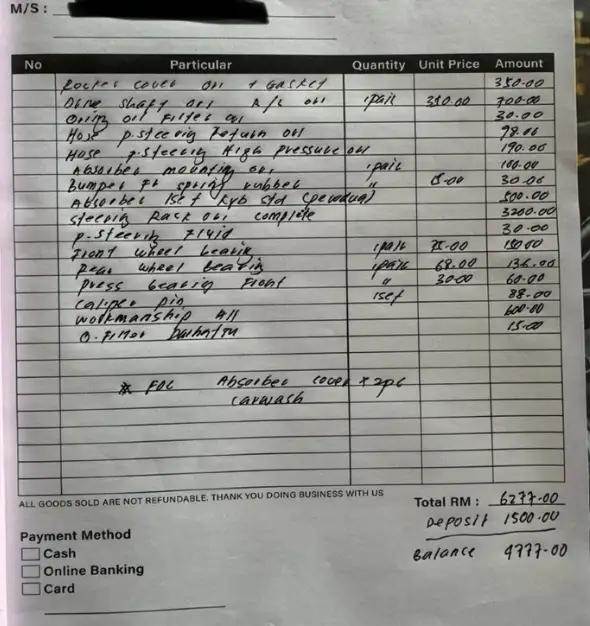 M/S :
No Particular Quantity Unit Price Amount
Rocker cover ori + Gasket 350.00
Drive shaft ori A/C ori 1pair 350.00 700.00
Oring oil Filter ori 30.00
Hose p.steering Return ori 98.00
Hose p.steering High pressure ori 190.00
Absorber mounting ori 1pair 100.00
Bumper Fr spring rubber " 30.00
Absorber 1set kyb std (perodua) 500.00
steering Rack ori complete 3200.00
p.steering Fluid 30.00
Front wheel bearing 1pair 75.00 150.00
Rear wheel bearing 1pair 68.00 136.00
press bearing Front " 30.00 60.00
caliper pin 1set 88.00
workmanship All 600.00
O.Filter 15.00
* FOC Absorber cover x 2pc
carwash
ALL GOODS SOLD ARE NOT REFUNDABLE. THANK YOU DOING BUSINESS WITH US
Total RM : 6277.00
Deposit 1500.00
Balance 4777.00
Payment Method
Cash
Online Banking
Card